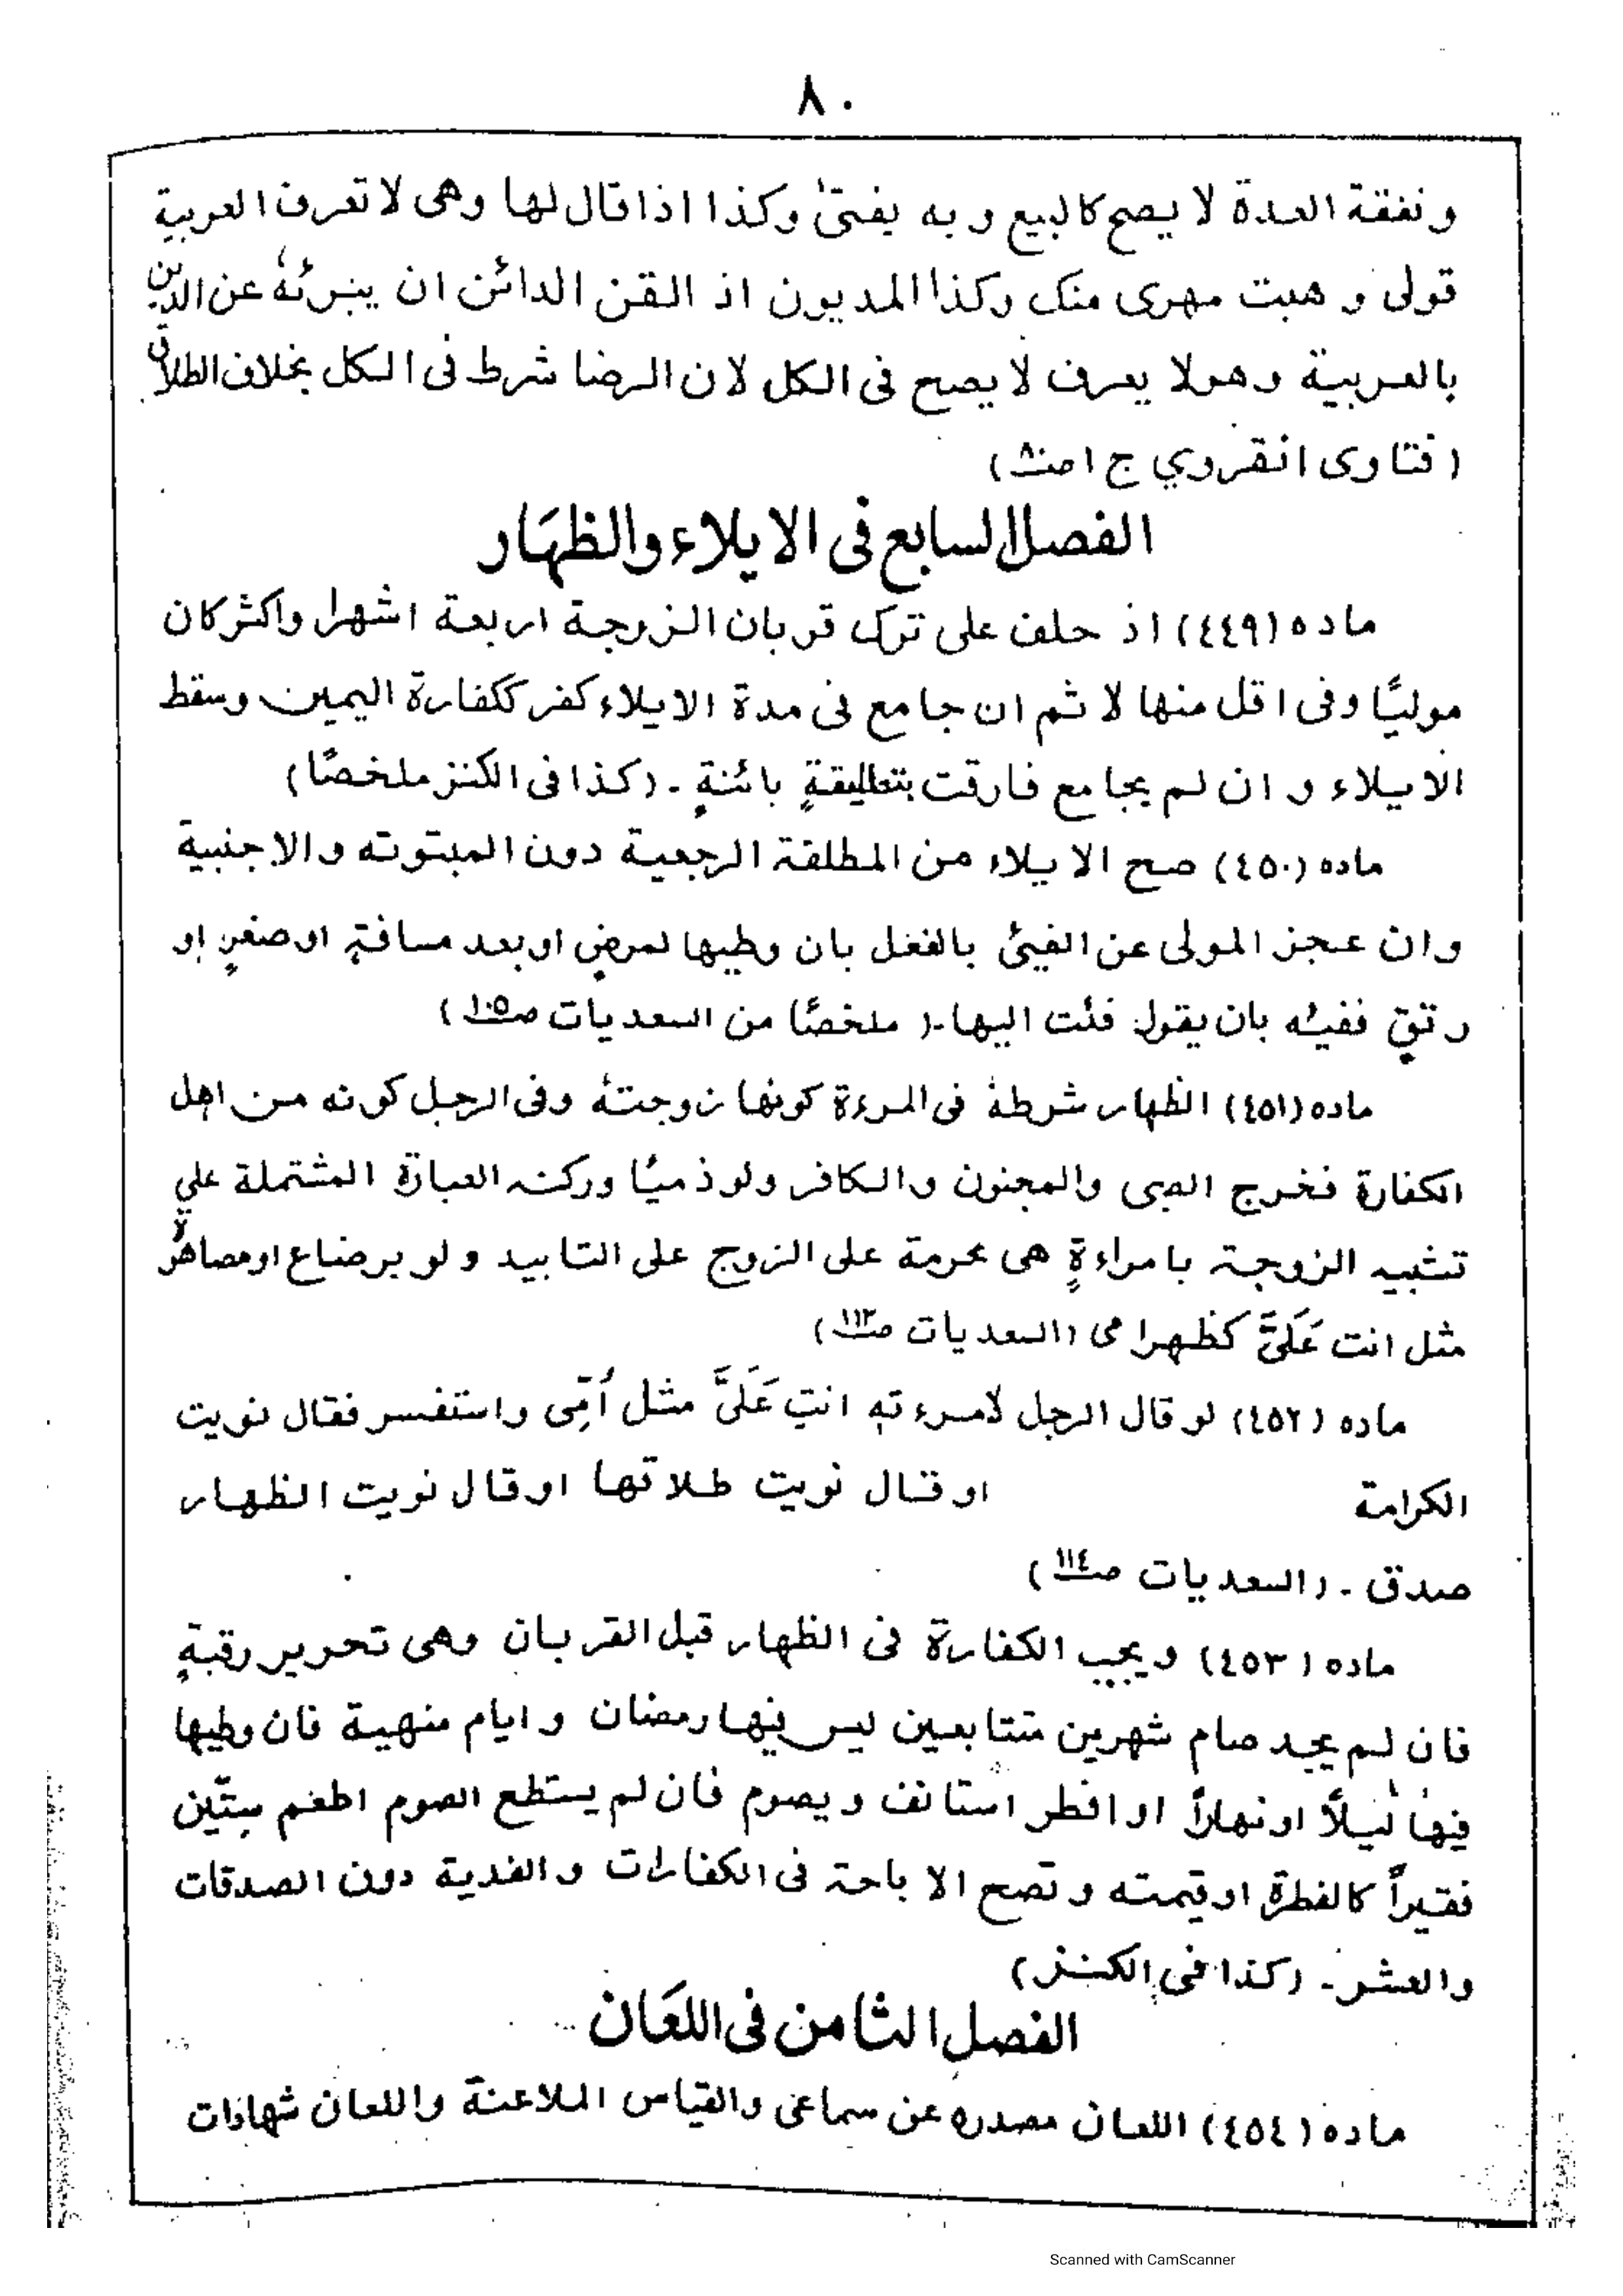 ٨٠
و نفقة العدة لا يصح كالبيع و به يفتىٰ وكذا اذا قال لها وهى لا تعرف العربية
قولى و هبت مهرى منك وكذا المديون اذ القن الدائن ان يبرئهٗ عن الدين
بالعربية وهولا يعرف لا يصح فى الكل لان الرضا شرط فى الكل بخلاف الطلاق
(فتاوى انقروي ج ا صـ٨)
الفصل السابع فى الايلاء والظهَار
ماده (٤٤٩) اذ حلف على ترك قربان الزوجة اربعة اشهرا واكثر كان
موليًا وفى اقل منها لا ثم ان جامع فى مدة الايلاء كفر ككفارة اليمين وسقط
الايلاء و ان لم يجامع فارقت بتطليقةٍ بائنةٍ ـ (كذا فى الكنز ملخصًا)
ماده (٤٥٠) صح الايلاء من المطلقة الرجعية دون المبتوته والاجنبية
وان عجز المولى عن الفيئ بالفعل بان وطيها لمرضٍ او بعد مسافةٍ او صغرٍ او
رتقٍ ففيئه بان يقول فئت اليها ـ (ملخصًا من السعديات صـ١٠٥)
ماده (٤٥١) الظهار شرطهٗ فى المرءة كونها زوجتهٗ وفى الرجل كونه من اهل
الكفارة فخرج الصبى والمجنون والكافر ولو ذميًا وركنه العبارة المشتملة علي
تشبيه الزوجة بامراءةٍ هى محرمة على الزوج على التابيد و لو برضاع او مصاهرة
مثل انت عَلَىَّ كظهرا مى (السعديات صـ١١٣)
ماده (٤٥٢) لو قال الرجل لامرءته انتِ عَلَىَّ مثل اُمّى واستفسر فقال نويت
الكرامة او قال نويت طلاقها او قال نويت الظهار
صدق ـ (السعديات صـ١١٤)
ماده (٤٥٣) ويجب الكفارة فى الظهار قبل القربان وهى تحرير رقبةٍ
فان لم يجد صام شهرين متتابعين ليس فيها رمضان و ايام منهية فان وطيها
فيها ليلاً او نهاراً او افطر استانف و يصوم فان لم يستطع الصوم اطعم ستّين
فقيراً كالفطرة او قيمته و تصح الاباحة فى الكفارات و الفدية دون الصدقات
والعشر ـ (كذا فى الكنز)
الفصل الثامن فى اللعَان
ماده (٤٥٤) اللعان مصدره عن سماعى والقياس الملاعنة واللعان شهادات
Scanned with CamScanner